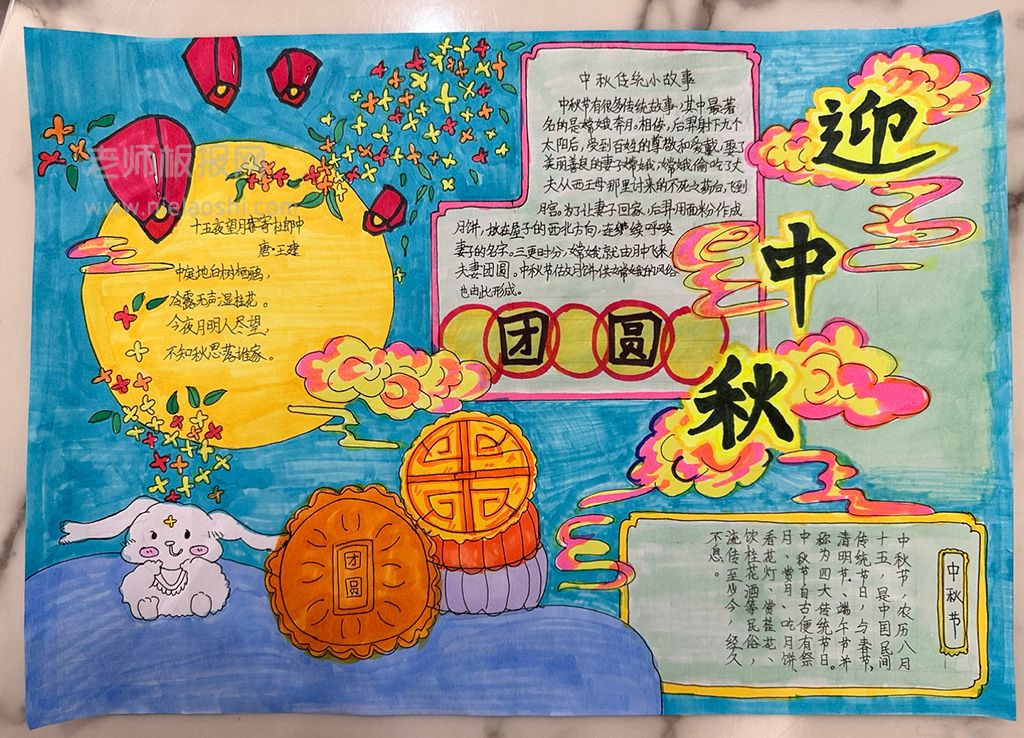 迎
中
秋
老师板报网
www.mela0shi.com
十五夜望月寄杜郎中
唐·王建
中庭地白树栖鸦，
冷露无声湿桂花。
今夜月明人尽望，
不知秋思落谁家。
中秋传统小故事
中秋节有很多传统故事，其中最著
名的是嫦娥奔月。相传，后羿射下九个
太阳后，受到百姓的尊敬和爱戴，娶了
美丽善良的妻子嫦娥，嫦娥偷吃了丈
夫从西王母那里讨来的不死之药后，飞到
月宫。为了让妻子回家，后羿用面粉作成
月饼，放在屋子的西北方向，连续呼唤
妻子的名字。三更时分，嫦娥就由月中飞来，
夫妻团圆。中秋节做月饼供嫦娥的风俗
也由此形成。
团圆
团
圆
中秋节
中秋节，农历八月
十五，是中国民间
传统节日，与春节、
清明节、端午节并
称为四大传统节日。
中秋节自古便有祭
月、赏月、吃月饼、
看花灯、赏桂花、
饮桂花酒等民俗，
流传至今，经久
不息。